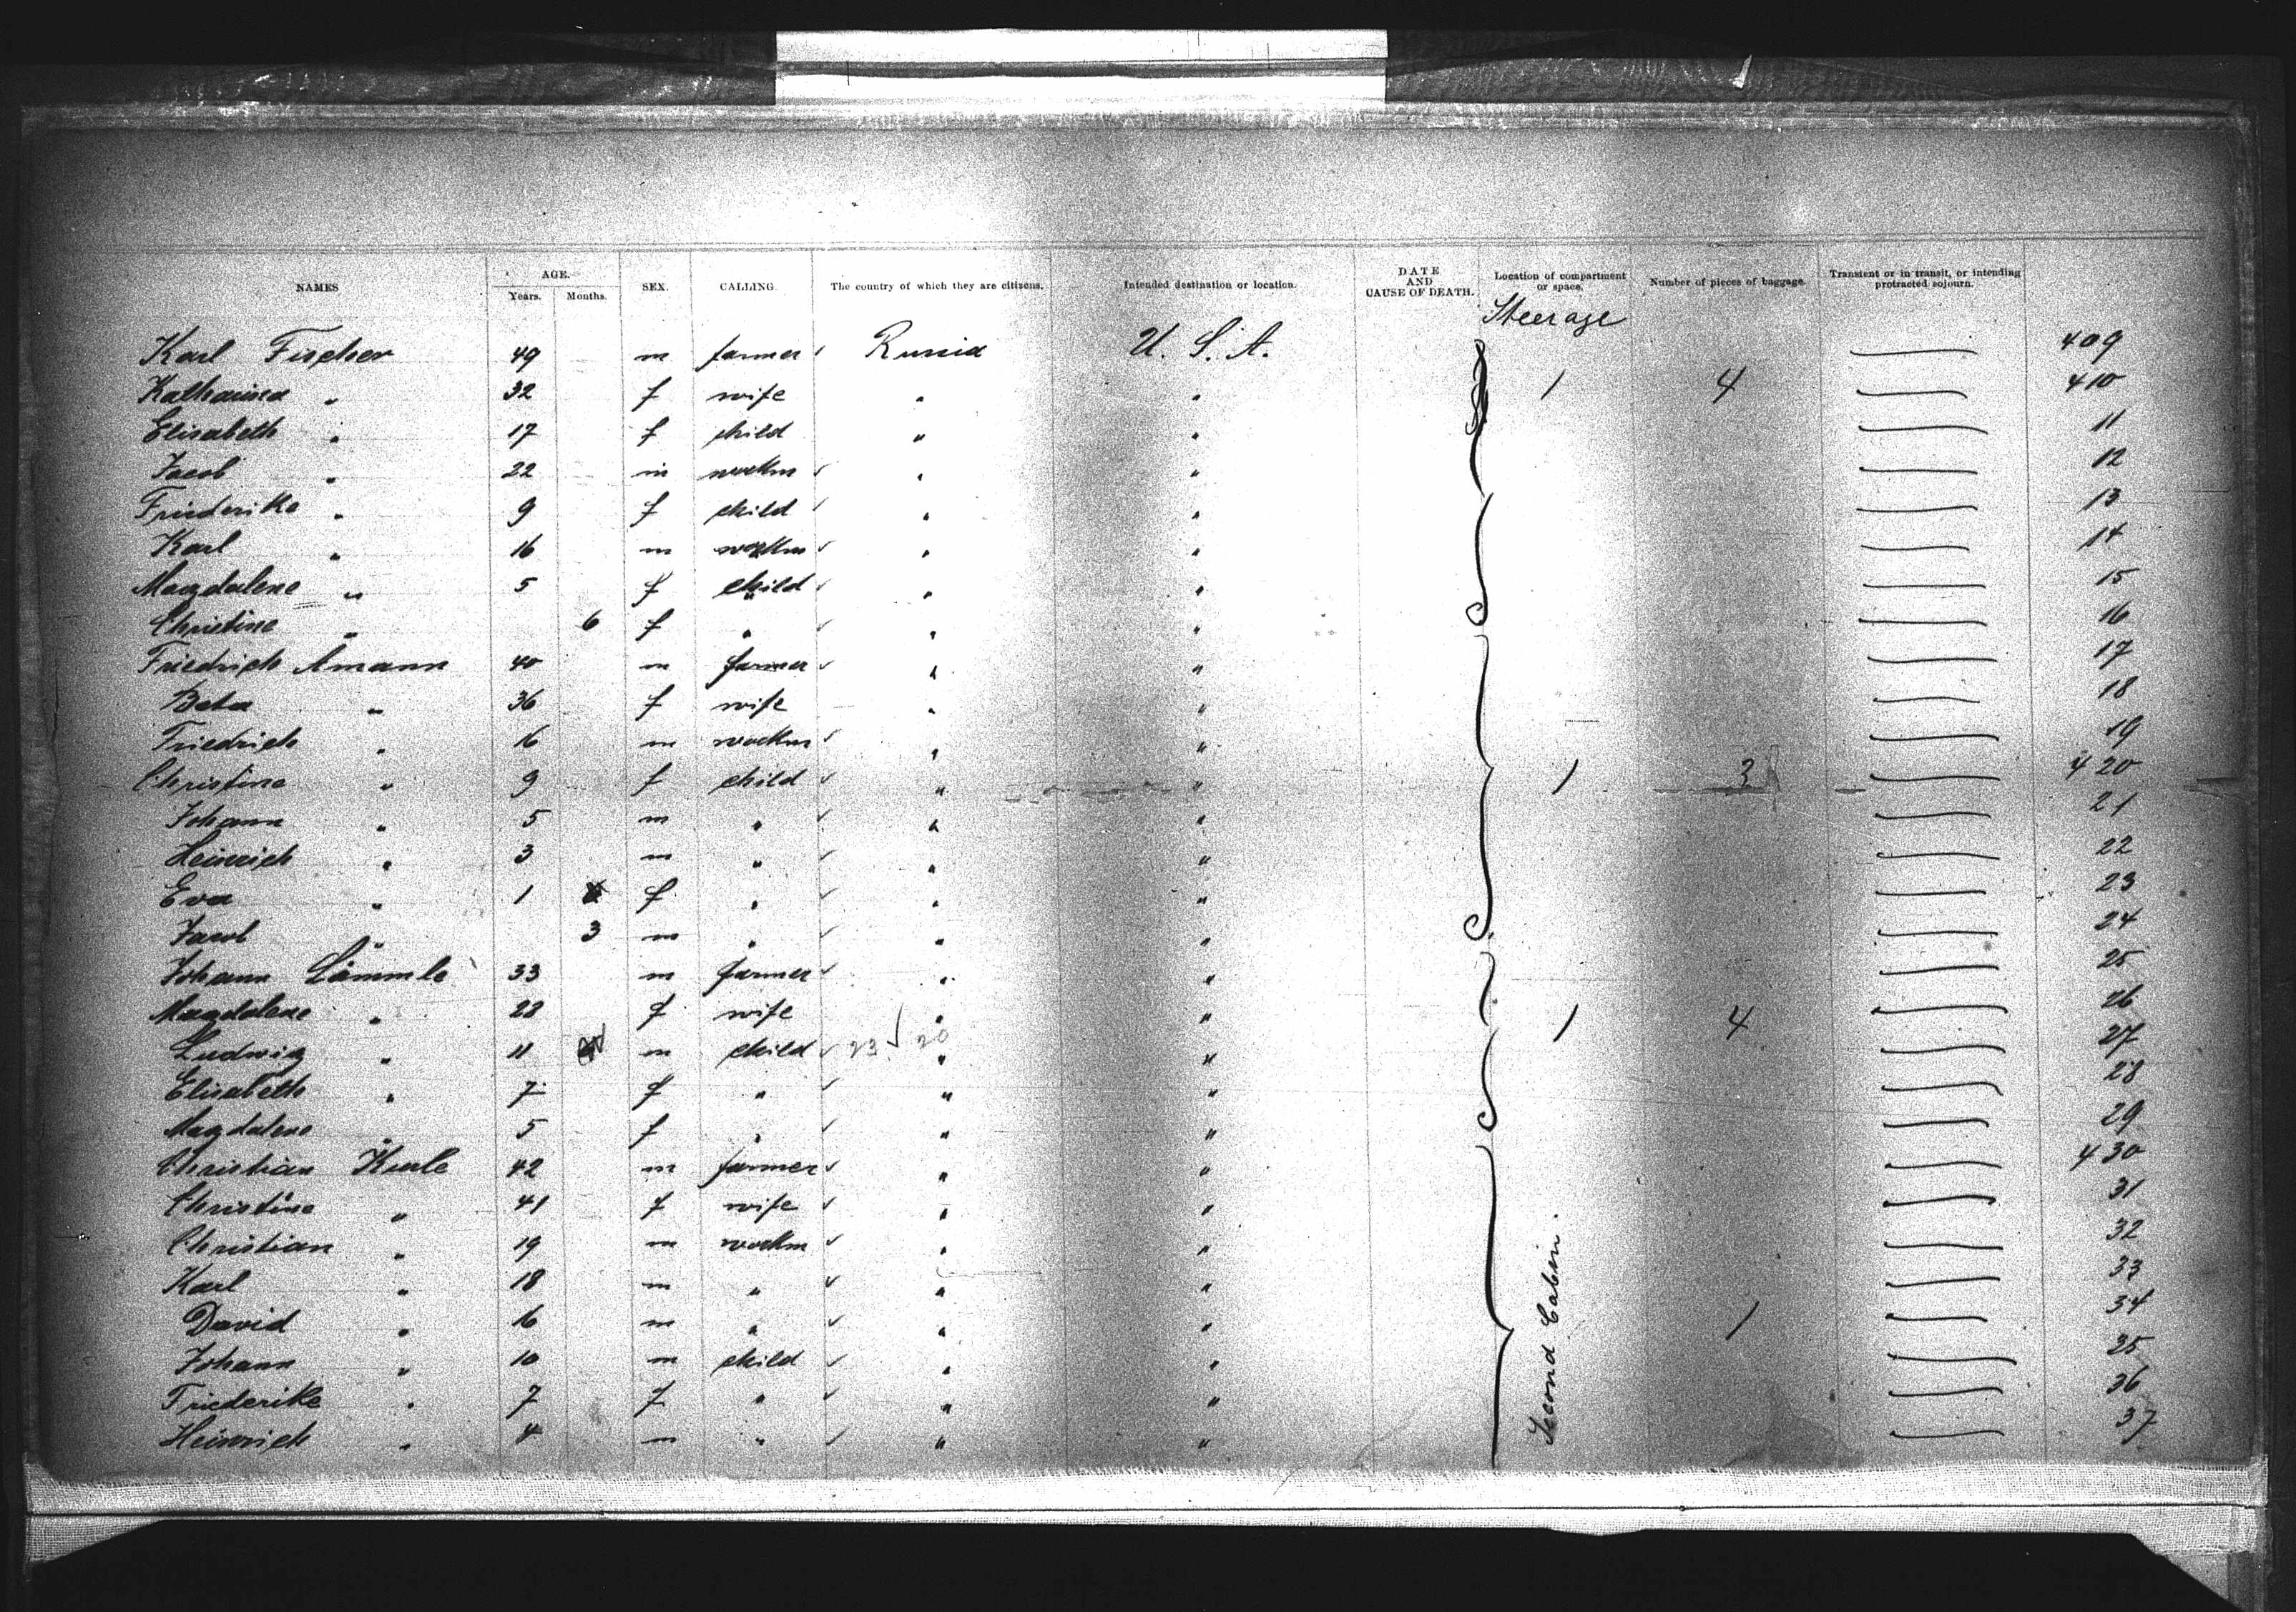 NAMES AGE. Years. Months. SEX. CALLING. The country of which they are citizens. Intended destination or location. DATE AND CAUSE OF DEATH. Location of compartment or space. Number of pieces of baggage. Transient or in transit, or intending protracted sojourn.
Steerage
Karl Fischer 49 m farmer Russia U. S. A. 409
Katharina " 32 f wife " " 1 4 410
Elisabeth " 17 f child " " 11
Jacob " 22 m workm " " 12
Friederike " 9 f child " " 13
Karl " 16 m workm " " 14
Magdalene " 5 f child " " 15
Christine " 6 f " " " 16
Friedrich Amann 40 m farmer " " 17
Beta " 36 f wife " " 18
Friedrich " 16 m workm " " 19
Christine " 9 f child " " 1 3 420
Johann " 5 m " " " 21
Heinrich " 3 m " " " 22
Eva " 1 f " " " 23
Jacob " 3 m " " " 24
Johann Lämmle 33 m farmer " " 25
Magdalene " 28 f wife " " 1 4 26
Ludwig " 11 m child 23 20 " " 27
Elisabeth " 7 f " " " 28
Magdalene " 5 f " " " 29
Christian 42 m farmer " " 430
Christine " 41 f wife " " 31
Christian " 19 m workm " " 32
Karl " 18 m " " " 33
David " 16 m " " " 1 34
Johann " 10 m child " " 35
Friederike " 7 f " " " 36
Heinrich " 4 m " " " 37
Second Cabin.